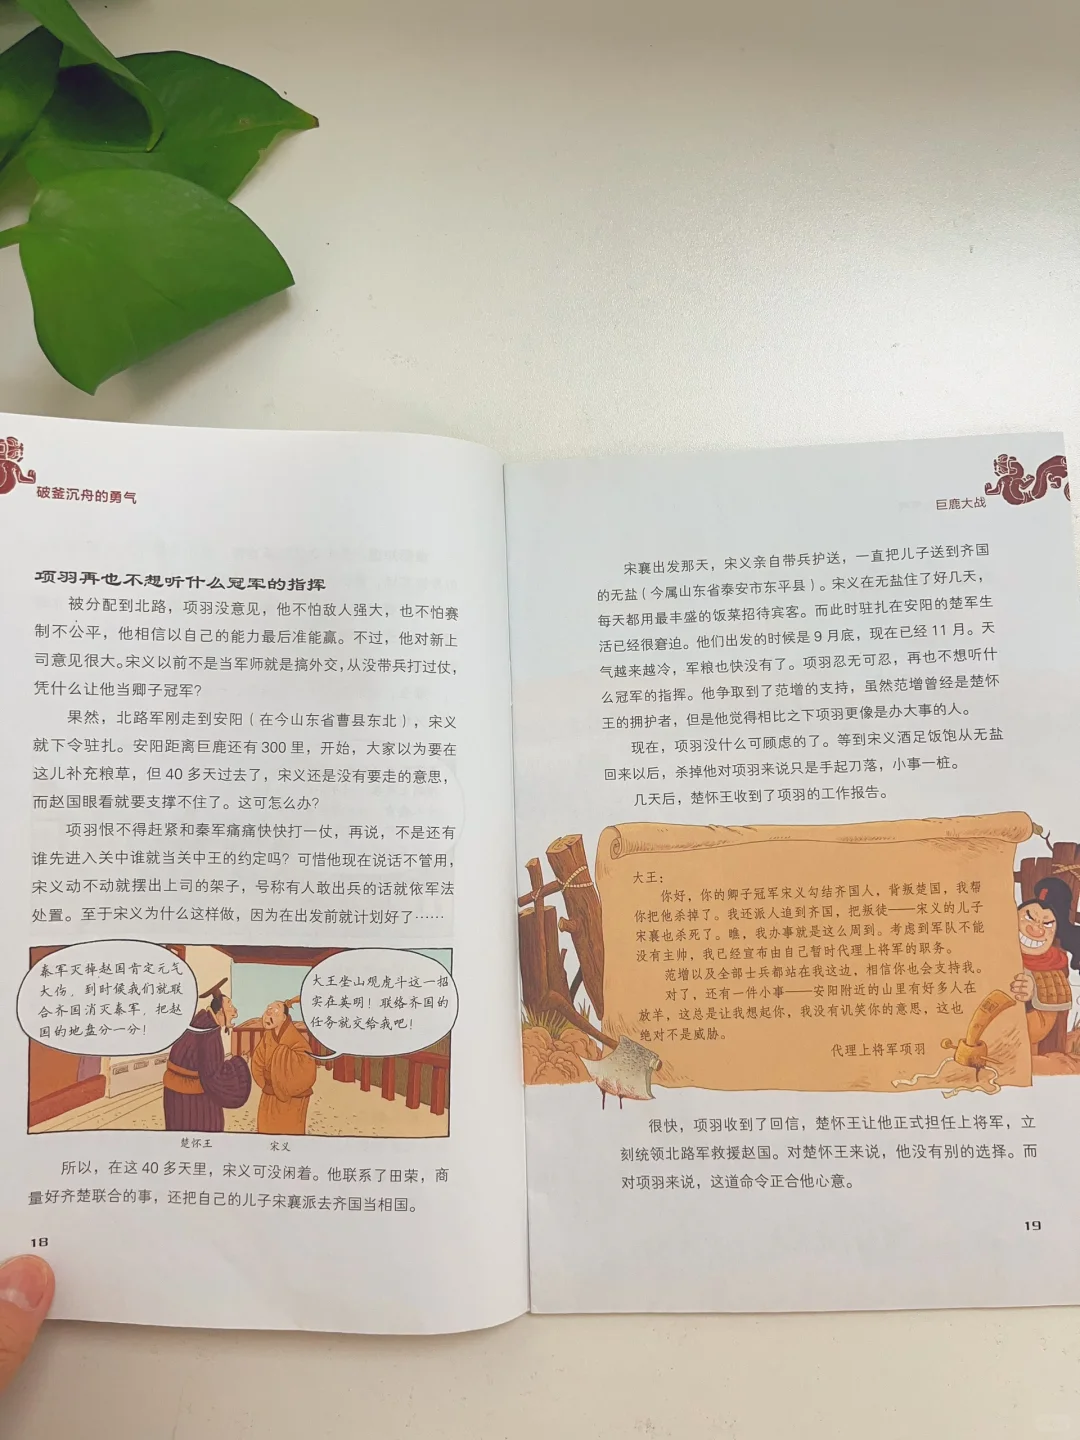 破釜沉舟的勇气
项羽再也不想听什么冠军的指挥
被分配到北路，项羽没意见，他不怕敌人强大，也不怕赛
制不公平，他相信以自己的能力最后准能赢。不过，他对新上
司意见很大。宋义以前不是当军师就是搞外交，从没带兵打过仗，
凭什么让他当卿子冠军？
果然，北路军刚走到安阳（在今山东省曹县东北），宋义
就下令驻扎。安阳距离巨鹿还有300里，开始，大家以为要在
这儿补充粮草，但40多天过去了，宋义还是没有要走的意思，
而赵国眼看就要支撑不住了。这可怎么办？
项羽恨不得赶紧和秦军痛痛快快打一仗，再说，不是还有
谁先进入关中谁就当关中王的约定吗？可惜他现在说话不管用，
宋义动不动就摆出上司的架子，号称有人敢出兵的话就依军法
处置。至于宋义为什么这样做，因为在出发前就计划好了……
秦军灭掉赵国肯定元气
大伤，到时候我们就联
合齐国消灭秦军，把赵
国的地盘分一分！
大王坐山观虎斗这一招
实在英明！联络齐国的
任务就交给我吧！
楚怀王
宋义
所以，在这40多天里，宋义可没闲着。他联系了田荣，商
量好齐楚联合的事，还把自己的儿子宋襄派去齐国当相国。
18
巨鹿大战
宋襄出发那天，宋义亲自带兵护送，一直把儿子送到齐国
的无盐（今属山东省泰安市东平县）。宋义在无盐住了好几天，
每天都用最丰盛的饭菜招待宾客。而此时驻扎在安阳的楚军生
活已经很窘迫。他们出发的时候是9月底，现在已经11月。天
气越来越冷，军粮也快没有了。项羽忍无可忍，再也不想听什
么冠军的指挥。他争取到了范增的支持，虽然范增曾经是楚怀
王的拥护者，但是他觉得相比之下项羽更像是办大事的人。
现在，项羽没什么可顾虑的了。等到宋义酒足饭饱从无盐
回来以后，杀掉他对项羽来说只是手起刀落，小事一桩。
几天后，楚怀王收到了项羽的工作报告。
大王：
你好，你的卿子冠军宋义勾结齐国人，背叛楚国，我帮
你把他杀掉了。我还派人追到齐国，把叛徒——宋义的儿子
宋襄也杀死了。瞧，我办事就是这么周到。考虑到军队不能
没有主帅，我已经宣布由自己暂时代理上将军的职务。
范增以及全部士兵都站在我这边，相信你也会支持我。
对了，还有一件小事——安阳附近的山里有好多人在
放羊，这总是让我想起你，我没有讥笑你的意思，这也
绝对不是威胁。
代理上将军项羽
很快，项羽收到了回信，楚怀王让他正式担任上将军，立
刻统领北路军救援赵国。对楚怀王来说，他没有别的选择。而
对项羽来说，这道命令正合他心意。
19